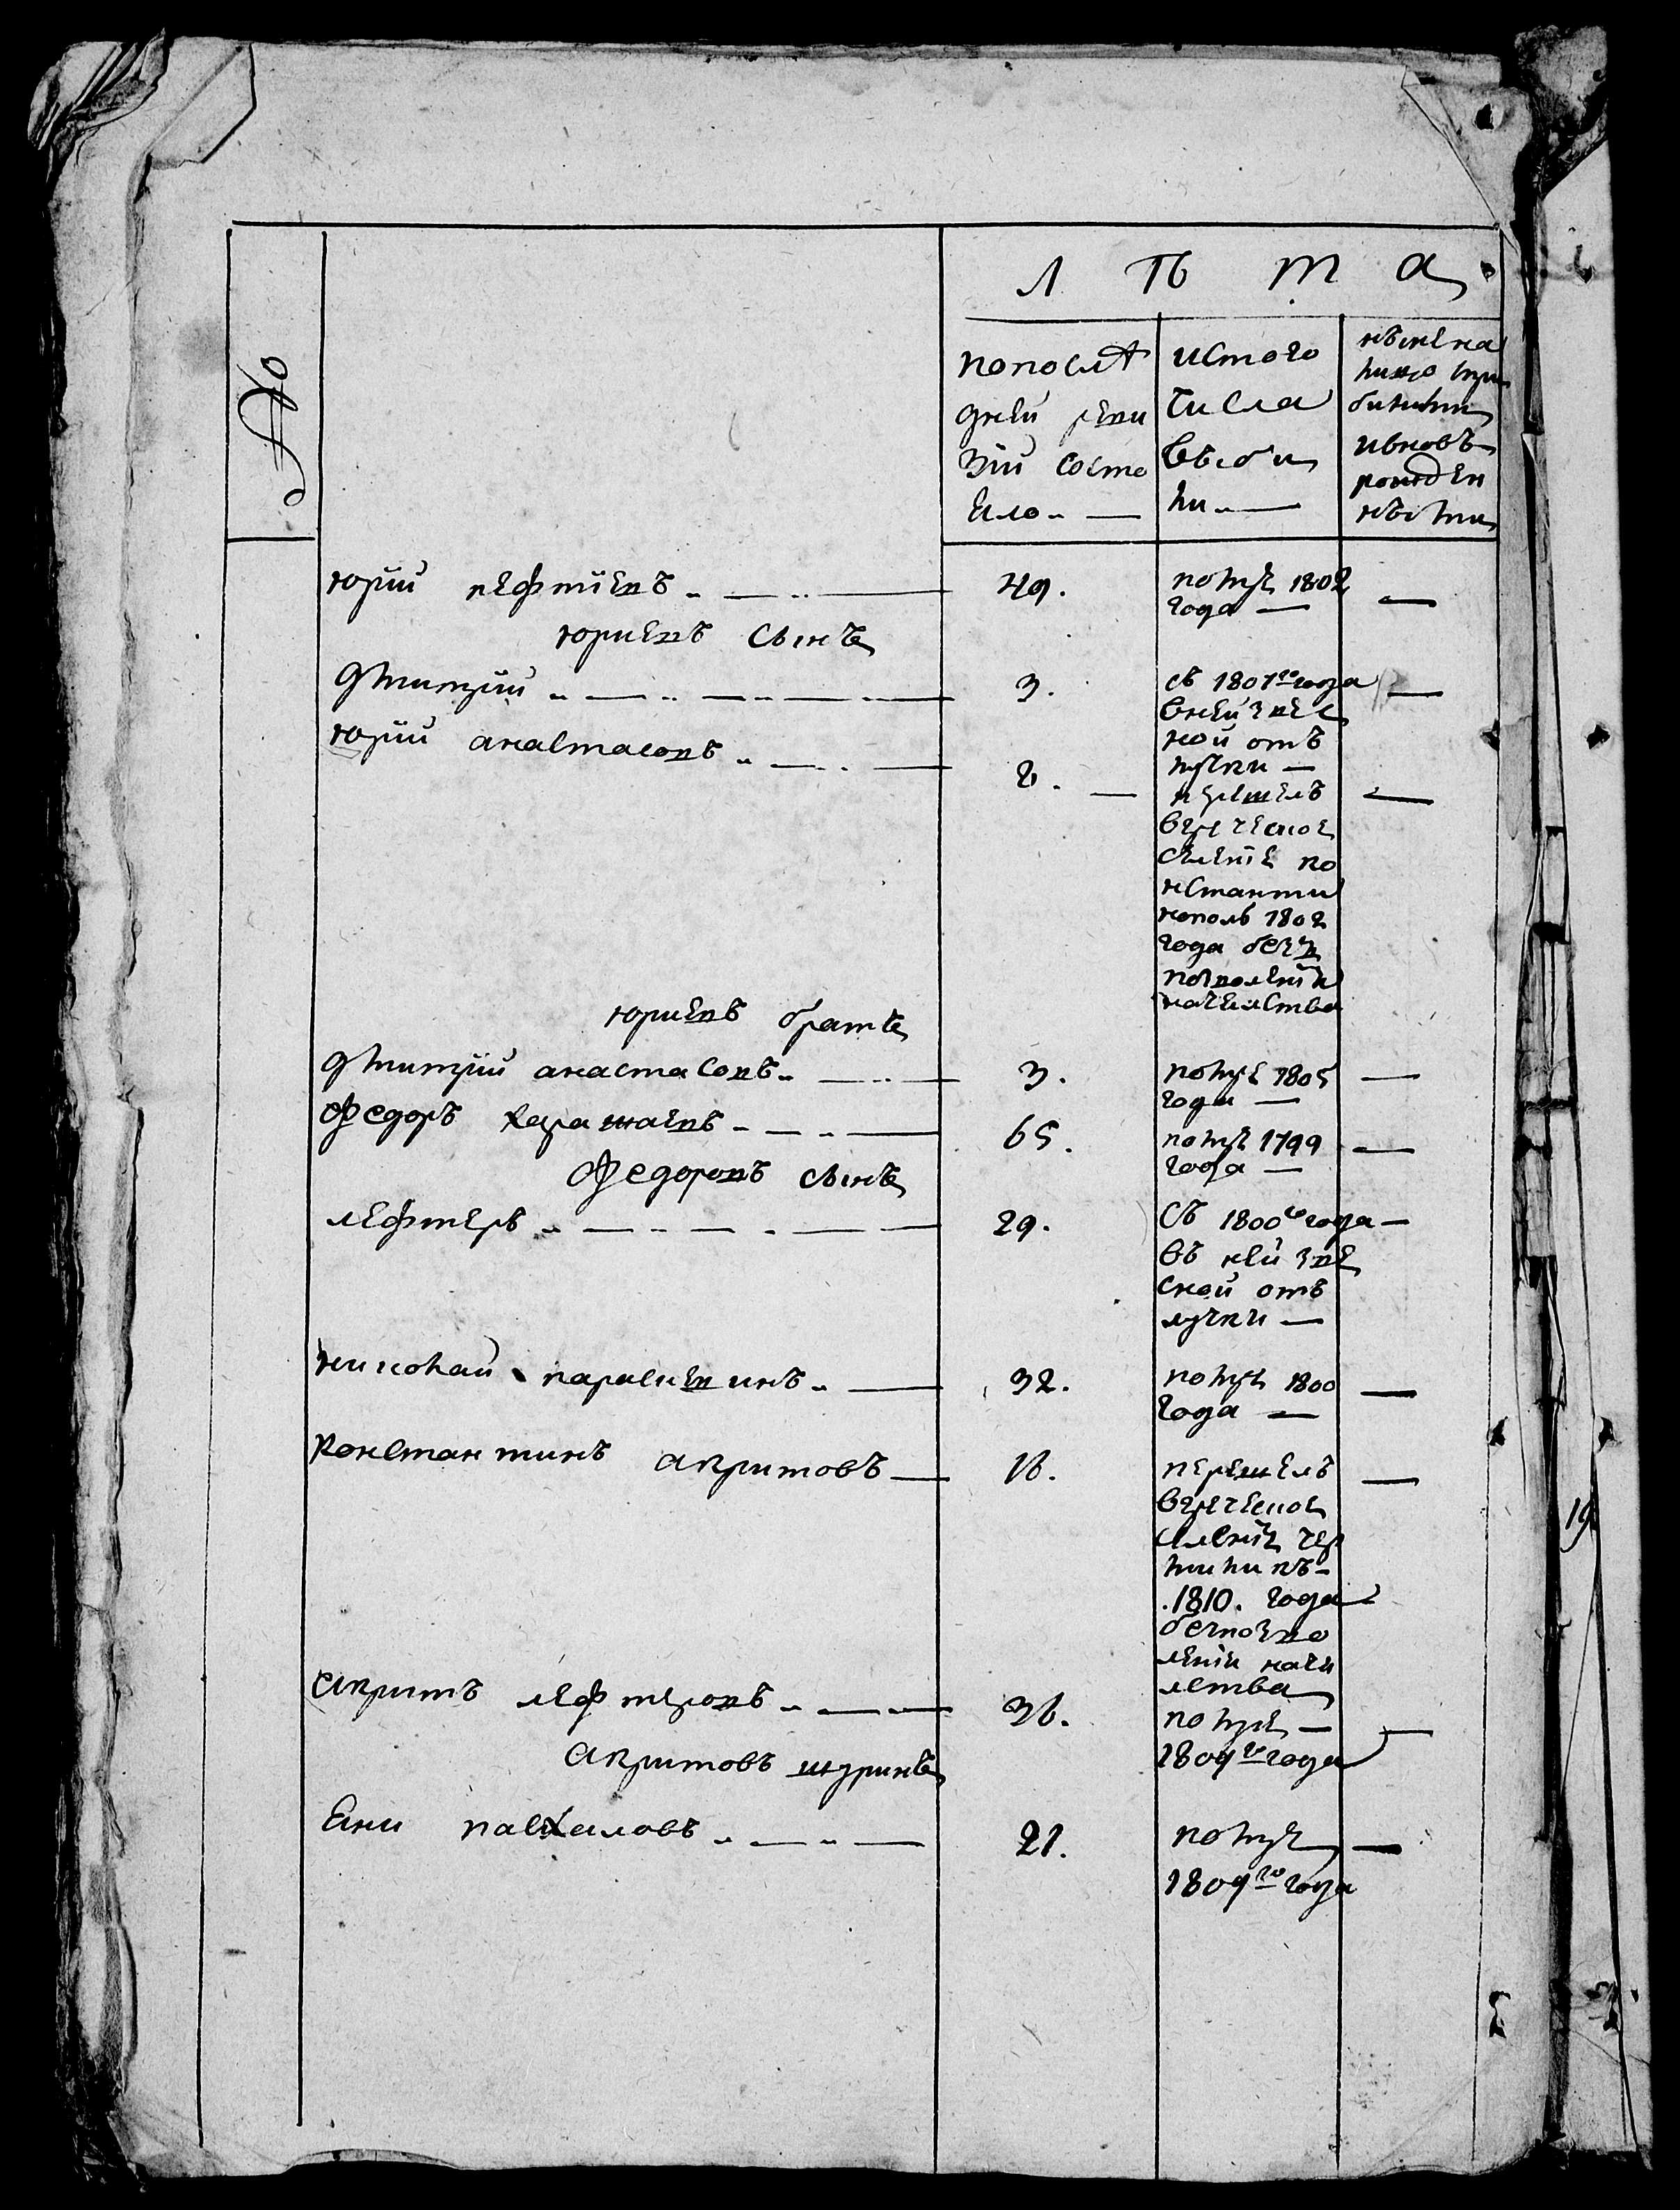 Л Ѣ Т А
№
попослѣ
дней реви
зіи состо
яло
истого
числа
выбы
ли
нынѣ на
лицо
ивновь
рожден
ными
юрий лефтіевъ 49. помре 1802
года
юриевъ сынъ
дмитрий 3. съ 1801го года
внеизвес
ной отъ
лучки
юрий анастасовъ 2. перешелъ
вгреческое
селеніе ко
нстанти
нополь 1802
года безъ
позволенія
начальства
юриевъ братъ
дмитрий анастасовъ 3. помре 1805
года
Федоръ харажаевъ 65. помре 1799
года
Федоровъ сынъ
лефтеръ 29. Съ 1800го года
въ неизве
сной отъ
лучки
николай 32. помре 1800
года
Константинъ акритовъ 16. перешелъ
вгреческое
селеніе чер
малыкъ
1810. года
безпозво
ленія нача
лства
Акритъ лефтеровъ 36. помре
1809го года
Акритовъ шуринъ
Яни пасхаловъ 21. помре
1809го года
19